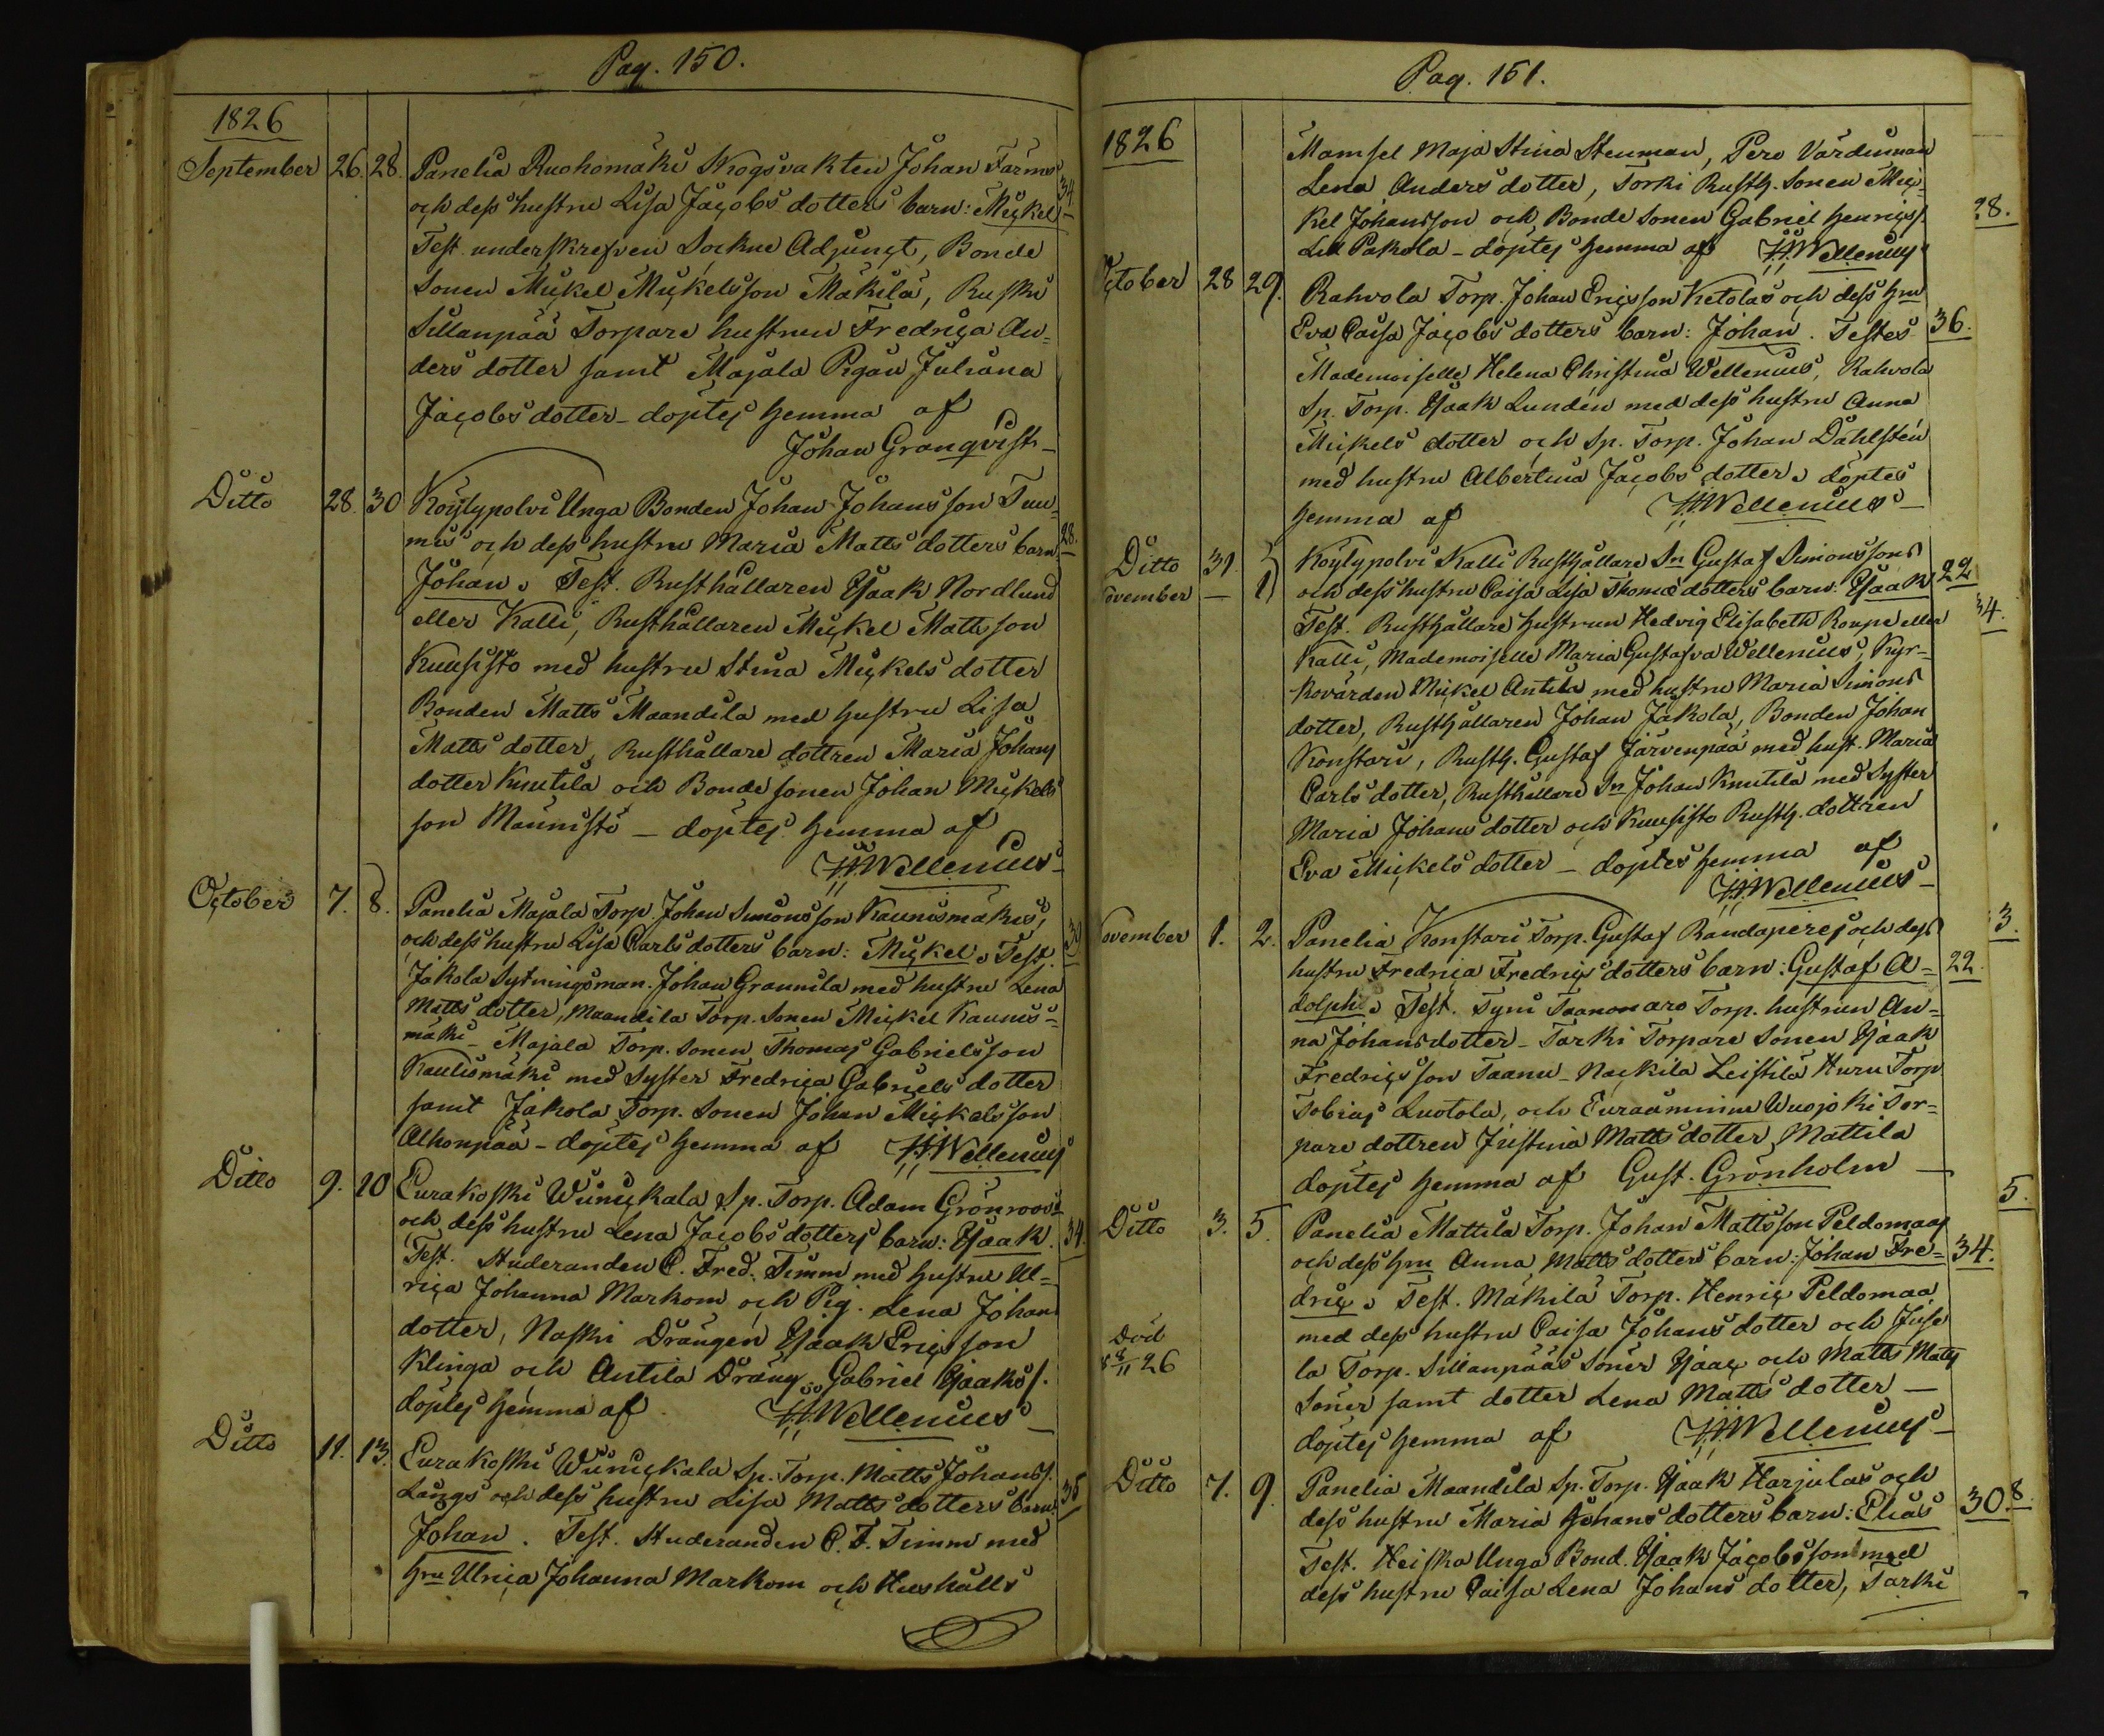 Pag. 150.
1826
September 26. 28. Panelia Ruohomäki Skogsvakten Johan Farms
och dess hustru Lisa Jacobs dotters barn: Mickel 34
Test. underskrefven Sockne Adjunct, Bonde
Sonen Mickel Mickelsson Mäkilä, Ruski
Sillanpää Torpare hustrun Fredrica An=
ders dotter samt Majala Pigan Juliana
Jacobs dotter - döptes hemma af
Johan Granqvist -
Ditto 28. 30 Köylypolvi Unga Bonden Johan Johansson Tum=
mis och dess hustru Maria Matts dotters barn 28.
Johan. Test. Rusthållaren Isaak Nordlund
eller Kalli, Rusthållaren Mickel Mattsson
Kuusisto med hustru Stina Mickels dotter
Bonden Matts Maandila med hustru Lisa
Matts dotter, Rusthållare dottren Maria Johans
dotter Knutila och Bonde sonen Johan Mickels
son Männistö - döptes hemma af
H.H. Wellenius -
October 7. 8. Panelia Majala Torp. Johan Simonsson Kaunismäkis,
och dess hustru Lisa Carls dotters barn: Mickel. Test. 30
Jakola Sytningsman Johan Grannila med hustru Lena
Matts dotter, Maandila Torp. Sonen Mickel Kaunis=
mäki - Majala Torp. sonen Thomas Gabrielsson
Kaulismäki med Syster Fredrica Gabriels dotter
samt Jakola Torp. Sonen Johan Mickelsson
Alhonpää - döptes hemma af H.H. Wellenius
Ditto 9. 10 Eurakoski Wumickala Sp. Torp. Adam Grönroos
och dess hustru Lena Jacobs dotters barn: Isaak. 34.
Test. Studeranden C. Fred. Timm med hustru Ul=
rica Johanna Markom och Pig. Lena Johans
dotter, Naski Drängen Isaak Ericsson
Klinga och Antila Dräng Gabriel Isaakss.
döptes hemma af H.H. Wellenius -
Ditto 11. 13. Eurakoski Wumickala Sp. Torp. Matts Johanss.
Längs och dess hustru Lisa Matts dotters barn: 35
Johan. Test. Studeranden C. F. Timm med
hru Ulrica Johanna Markom och Hushålls
Pag. 151.
1826
Mamsel Maja Stina Stenman, Pero Värdinnan
Lena Anders dotter, Torki Rusth. Sonen Mic=
kel Johansson och Bonde Sonen Gabriel Henrics.
Lill Pakola - döptes hemma af H.H. Wellenius
October 28 29. Rahvola Torp. Johan Ericsson Ketolas och dess hru
Eva Caisa Jacobs dotters barn: Johan. Testes 36.
Mademoiselle Helena Christina Wellenius, Rahvola
Sp. Torp. Isaak Lundén med dess hustru Anna
Mickels dotter och Sp. Torp. Johan Dahlstén
med hustru Albertina Jacobs dotter. döptes
hemma af H.H. Wellenius -
Ditto 31. Köylypolvi Kalli Rusthållare Sn Gustaf Simonssons
November — 1) och dess hustru Caisa Lisa Thomæ dotters barn: Isaak 22
Test. Rusthållare hustrun Hedvig Elisabeth Roupe eller
Kalli, Mademoiselle Maria Gustafva Wellenius, Kyr=
kovärden Mickel Antila med hustru Maria Simons
dotter, Rusthållaren Johan Jakola, Bonden Johan
Konstari, Rusth. Gustaf Järvenpää med hust. Maria
Carls dotter, Rusthållare Sn Johan Knutila med Syster
Maria Johans dotter och Kuusisto Rusth. dottren
Eva Mickels dotter - döptes hemma af
H.H. Wellenius -
November 1. 2. Panelia Konstari Torp. Gustaf Randaperes och dess
hustru Fredrica Fredrics dotters barn: Gustaf A= 22.
dolph. Test. Tyni Taanomaro Torp. hustrun An=
na Johansdotter - Tarki Torpare Sonen Isaak
Fredricsson Taanu - Nackila Leistilä Huru Torp
Tobias Luotola, och Euraåminne Wuojoki Tor=
pare dottren Justina Matts dotter Mattila
döptes hemma af Gust. Grönholm —
Ditto 3. 5. Panelia Mattila Torp. Johan Mattsson Peldomaas
och dess hru Anna Matts dotters barn: Johan Fre= 34.
dric. Test. Mäkilä Torp. Henric Peldomaa
med dess hustru Caisa Johans dotter och Juse
la Torp. Sillanpääs Söner Isaac och Matts Matts
Söner samt dotter Lena Matts dotter —
döptes hemma af H.H. Wellenius -
Död
8/11 26
Ditto 7. 9. Panelia Maandila Sp. Torp. Isaak Harjulas och
dess hustru Maria Johans dotters barn: Elias 30.
Test. Heiska Unga Bond. Isaak Jacobsson med
dess hustru Caisa Lena Johans dotter, Tarki
28.
34.
3.
5.
8.